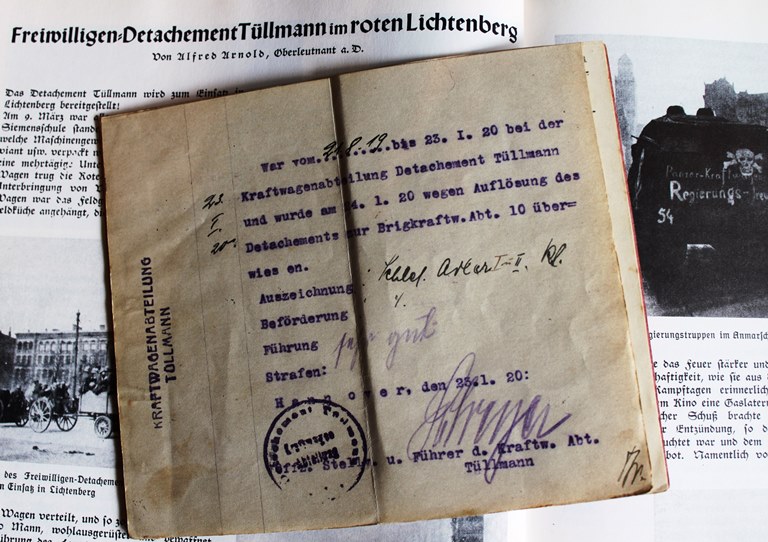 Freiwilligen-Detachement Tüllmann im roten Lichtenberg
Von Alfred Arnold, Oberleutnant a. D.
Das Detachement Tüllmann wird zum Einsatz
Lichtenberg bereitgestellt!
Am 9. März war
Siemensschule stand
welche Maschinengew
viant usw. verpackt
eine mehrtägige Unte
Wagen trug die Rote
Unterbringung von
Wagen war das Feldg
Feldküche angehängt, d
KRAFTWAGENABTEILUNG
TÜLLMANN
War vom 21.8.19. bis 23. I. 20 bei der
Kraftwagenabteilung Detachement Tüllmann
und wurde am 24. 1. 20 wegen Auflösung des
Detachements zur Brigkraftw. Abt. 10 über=
wiesen.
Auszeichnung: Schles. Adler I-II. Kl.
Beförderung
Führung sehr gut
Strafen:
Hannover, den 23.1. 20:
Offz. Stellv. u. Führer d. Kraftw. Abt.
Tüllmann
Detachement Tüllmann
Kraftwagen
Abteilung
Panzer-Kraftw
Regierungs-treu
54
gierungstruppen im Anmarsch
e das Feuer stärker und
haftigkeit, wie sie aus
Kampftagen erinnerlich
m Kino eine Gaslatern
cher Schuß brachte
Entzündung, so d
uchtet war und dem
bot. Namentlich vo
des Freiwilligen-Detachement
n Einsatz in Lichtenberg
Wagen verteilt, und so z
o Mann, wohlausgerüstet und bewaffnet